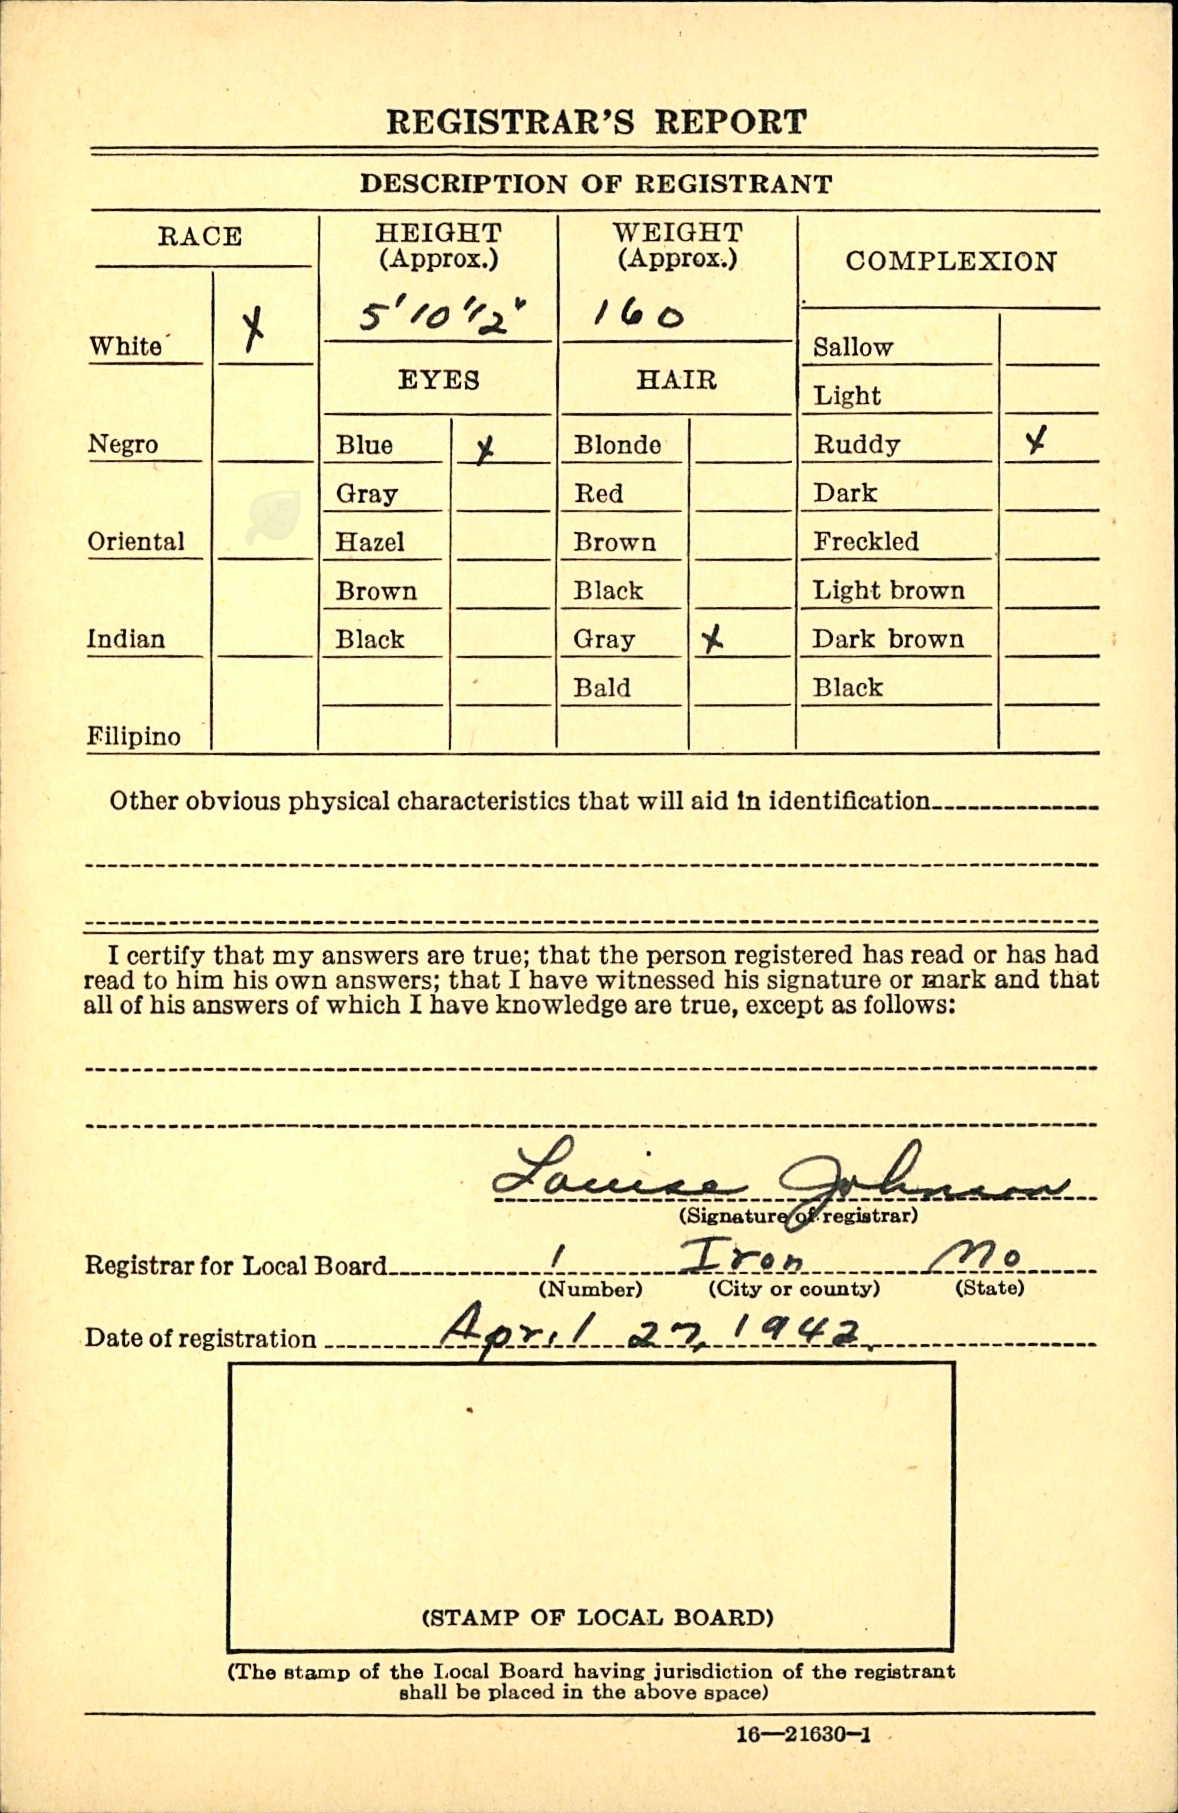 REGISTRAR'S REPORT
DESCRIPTION OF REGISTRANT
RACE HEIGHT (Approx.) WEIGHT (Approx.) COMPLEXION
5' 10 1/2" 160
White X Sallow
EYES HAIR
Light
Negro Blue X Blonde Ruddy X
Gray Red Dark
Oriental Hazel Brown Freckled
Brown Black Light brown
Indian Black Gray X Dark brown
Bald Black
Filipino
Other obvious physical characteristics that will aid in identification
I certify that my answers are true; that the person registered has read or has had
read to him his own answers; that I have witnessed his signature or mark and that
all of his answers of which I have knowledge are true, except as follows:
Louise Johnson
(Signature of registrar)
Registrar for Local Board 1 Iron Mo
(Number) (City or county) (State)
Date of registration April 27, 1942.
(STAMP OF LOCAL BOARD)
(The stamp of the Local Board having jurisdiction of the registrant
shall be placed in the above space)
16—21630-1